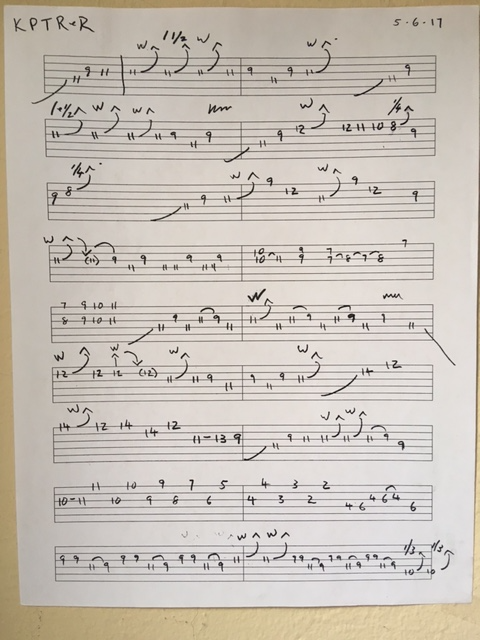 KPTR&R 5-6-17
W 1 1/2 W W
11 9 11 11 11 11 11 9 11 9 11 11 9
1+1/2 W W W 1/4
11 11 11 11 9 11 9 11 9 12 12 11 10 8 9
1/4 W W
9 8 11 9 11 9 12 11 9 12 9
W
11 (11) 9 11 9 11 11 9 11 11 9 10 10 11 9 9 7 7 8 7 8 7
7 9 10 11 W
8 9 10 11 11 9 11 9 11 11 11 9 11 9 11 9 11
W W W W
12 12 12 (12) 11 11 9 11 9 9 11 14 12
W W W
14 12 14 14 12 11-13 9 11 9 11 11 11 11 9 9
11 10 9 7 5 4 3 2
10-11 10 9 8 6 4 3 2 4 6 4 6 4 6
W W 1/3 1/3
9 9 11 9 9 9 11 9 9 9 11 9 11 11 11 11 11 9 9 9 11 9 9 9 11 9 10 10